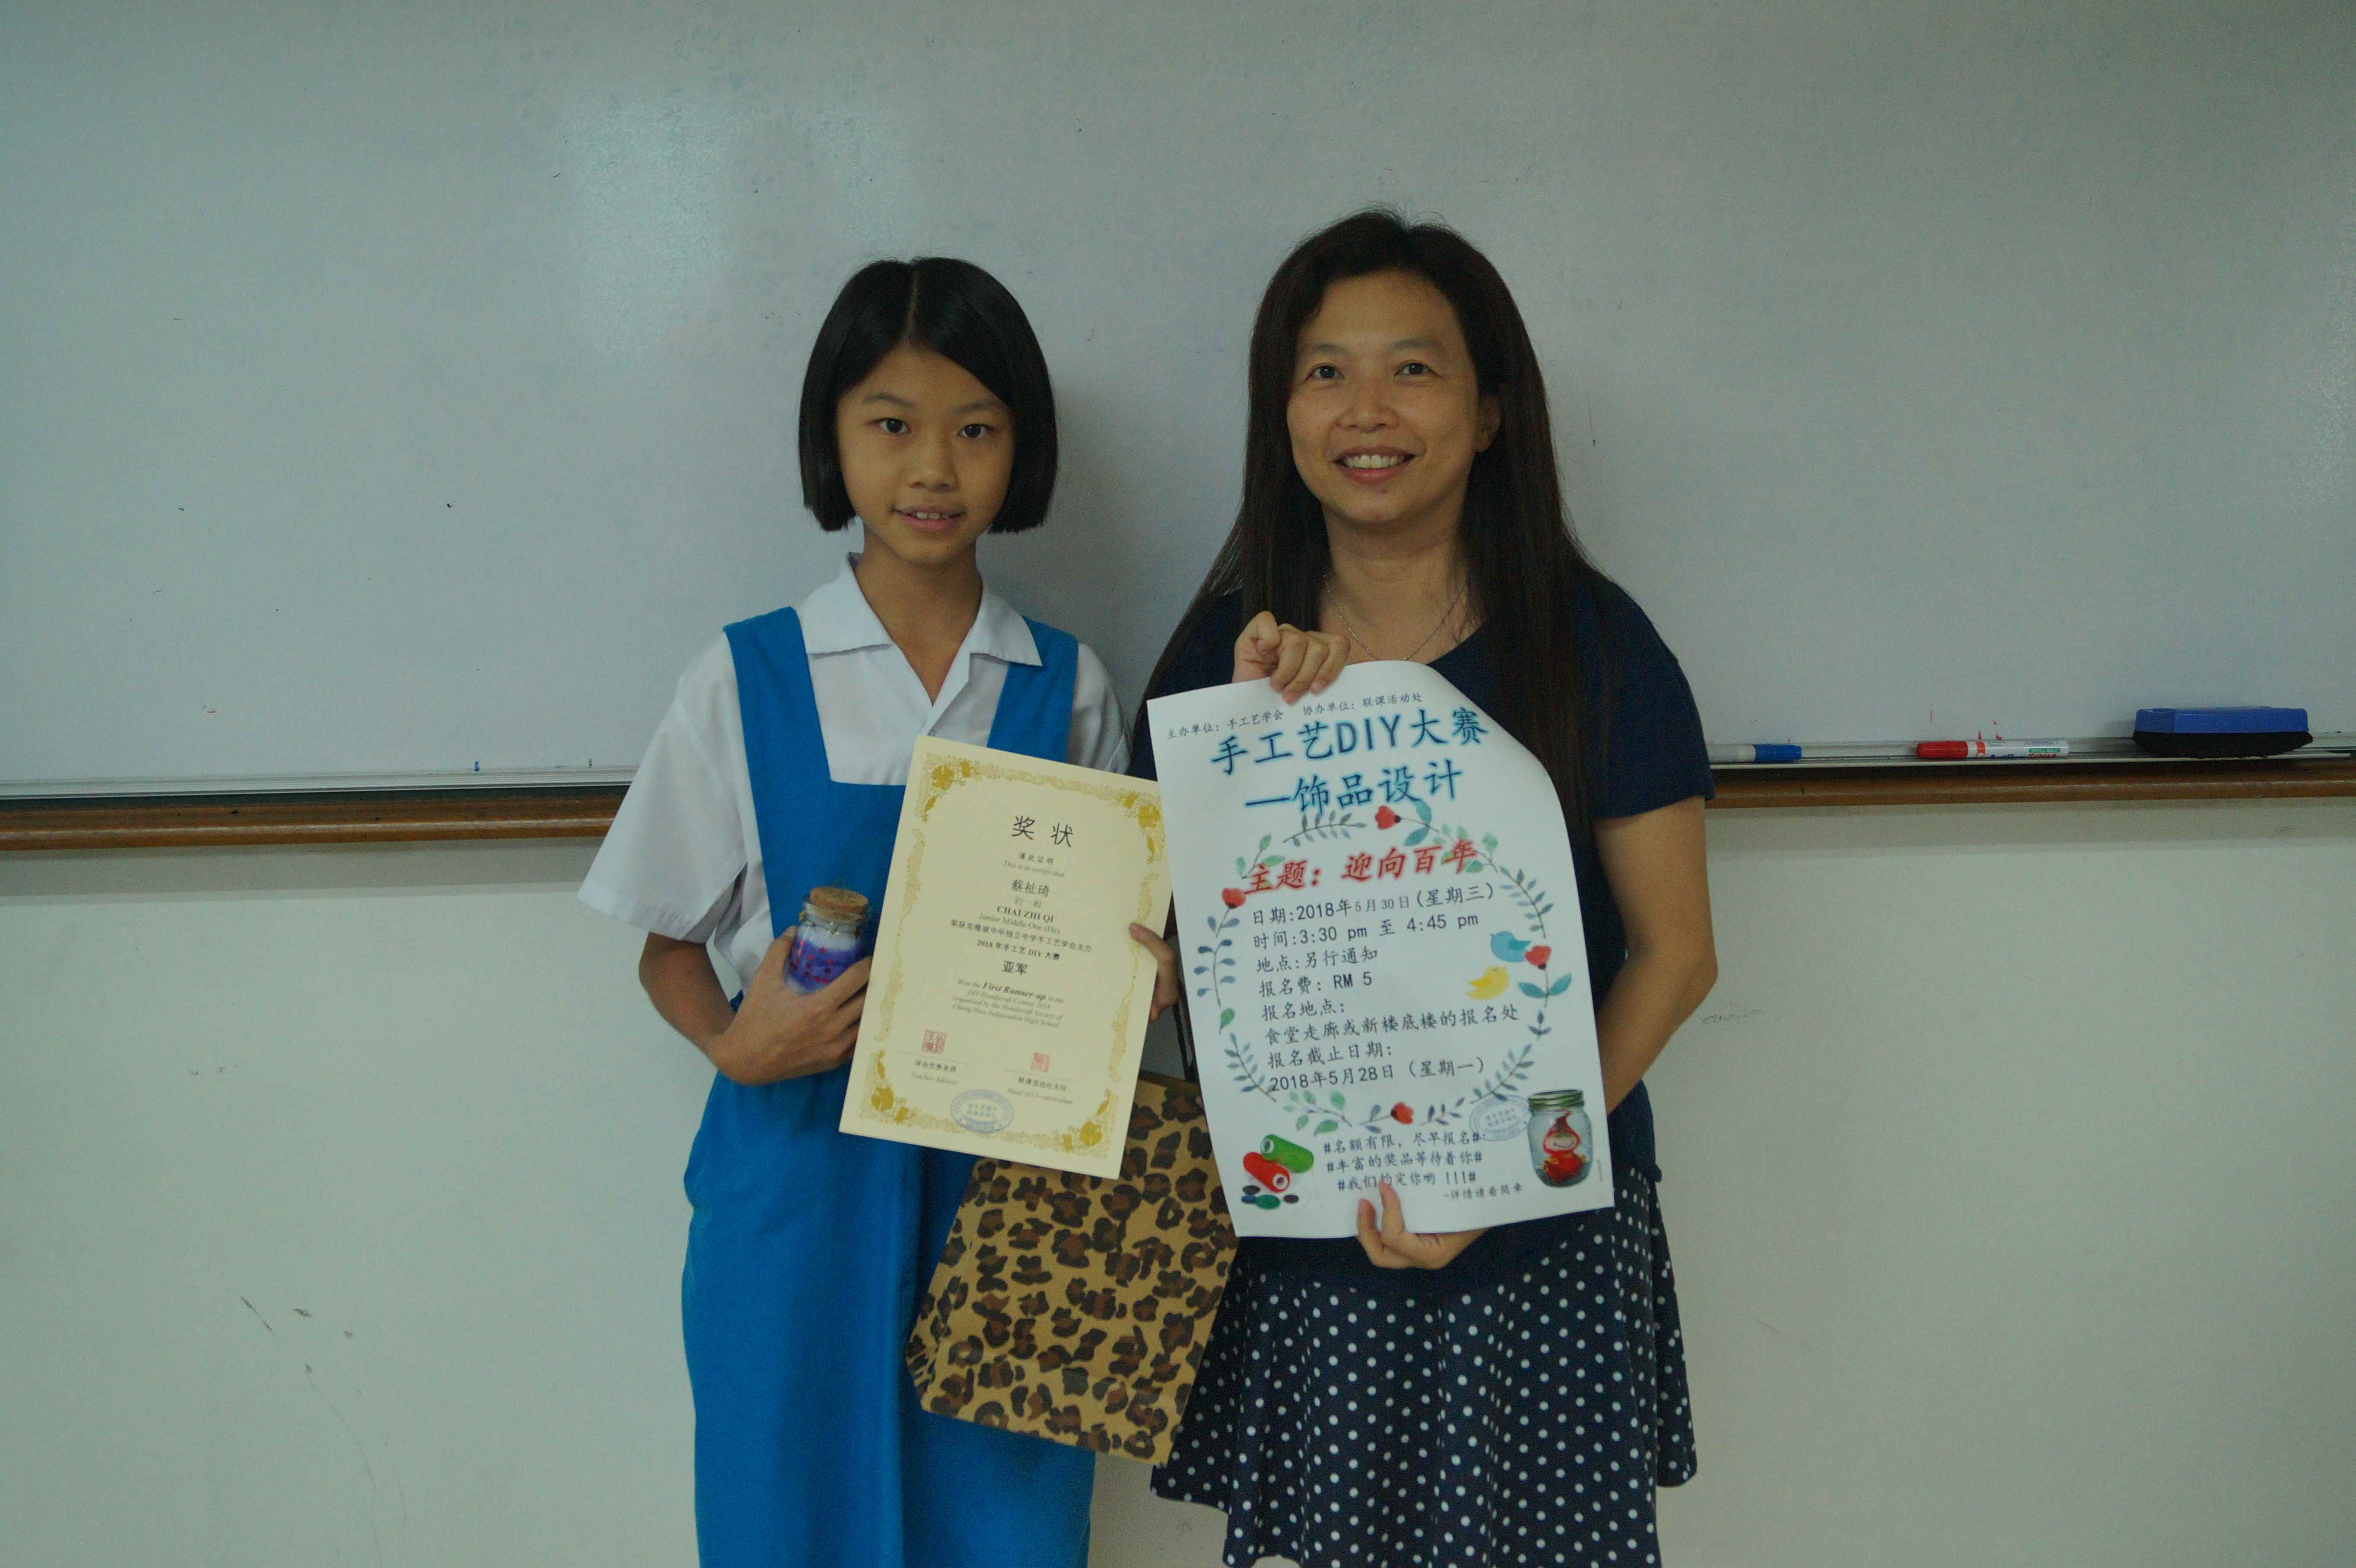 奖 状
谨此证明
This is to certify that
蔡祉琦
初一和
CHAI ZHI QI
Junior Middle One (He)
荣获吉隆坡中华独立中学手工艺学会主办
2018 年手工艺 DIY 大赛
亚军
Won the First Runner-up in the
DIY Handicraft Contest 2018
organized by the Handicraft Society of
Chong Hwa Independent High School
学会负责老师
Teacher Advisor
联课活动处主任
Head of Co-curriculum
主办单位：手工艺学会 协办单位：联课活动处
手工艺DIY大赛
—饰品设计
主题：迎向百年
日期:2018年5月30日(星期三)
时间:3:30 pm 至 4:45 pm
地点:另行通知
报名费: RM 5
报名地点:
食堂走廊或新楼底楼的报名处
报名截止日期:
2018年5月28日 (星期一)
#名额有限，尽早报名#
#丰富的奖品等待着你#
#我们约定你哟 !!!#
-详情请看简章